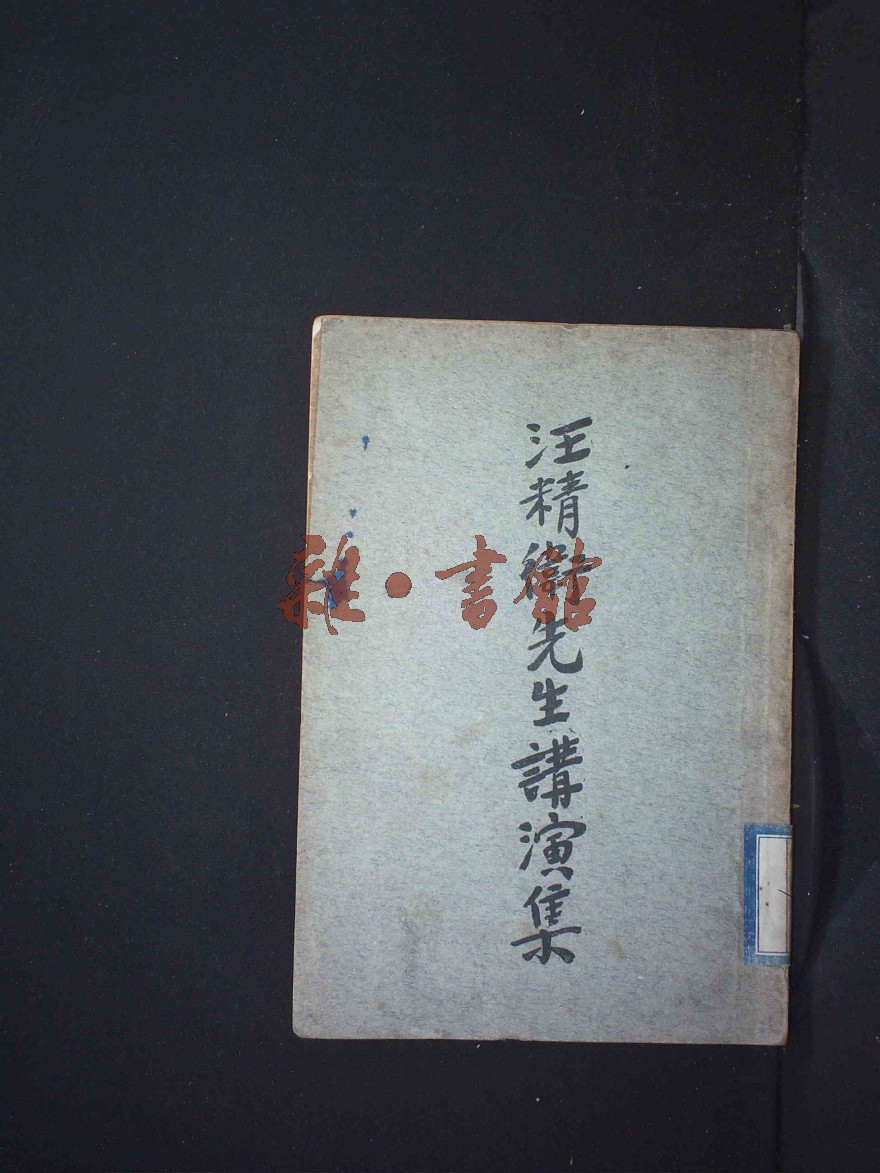 汪精衛先生講演集
雜·書館